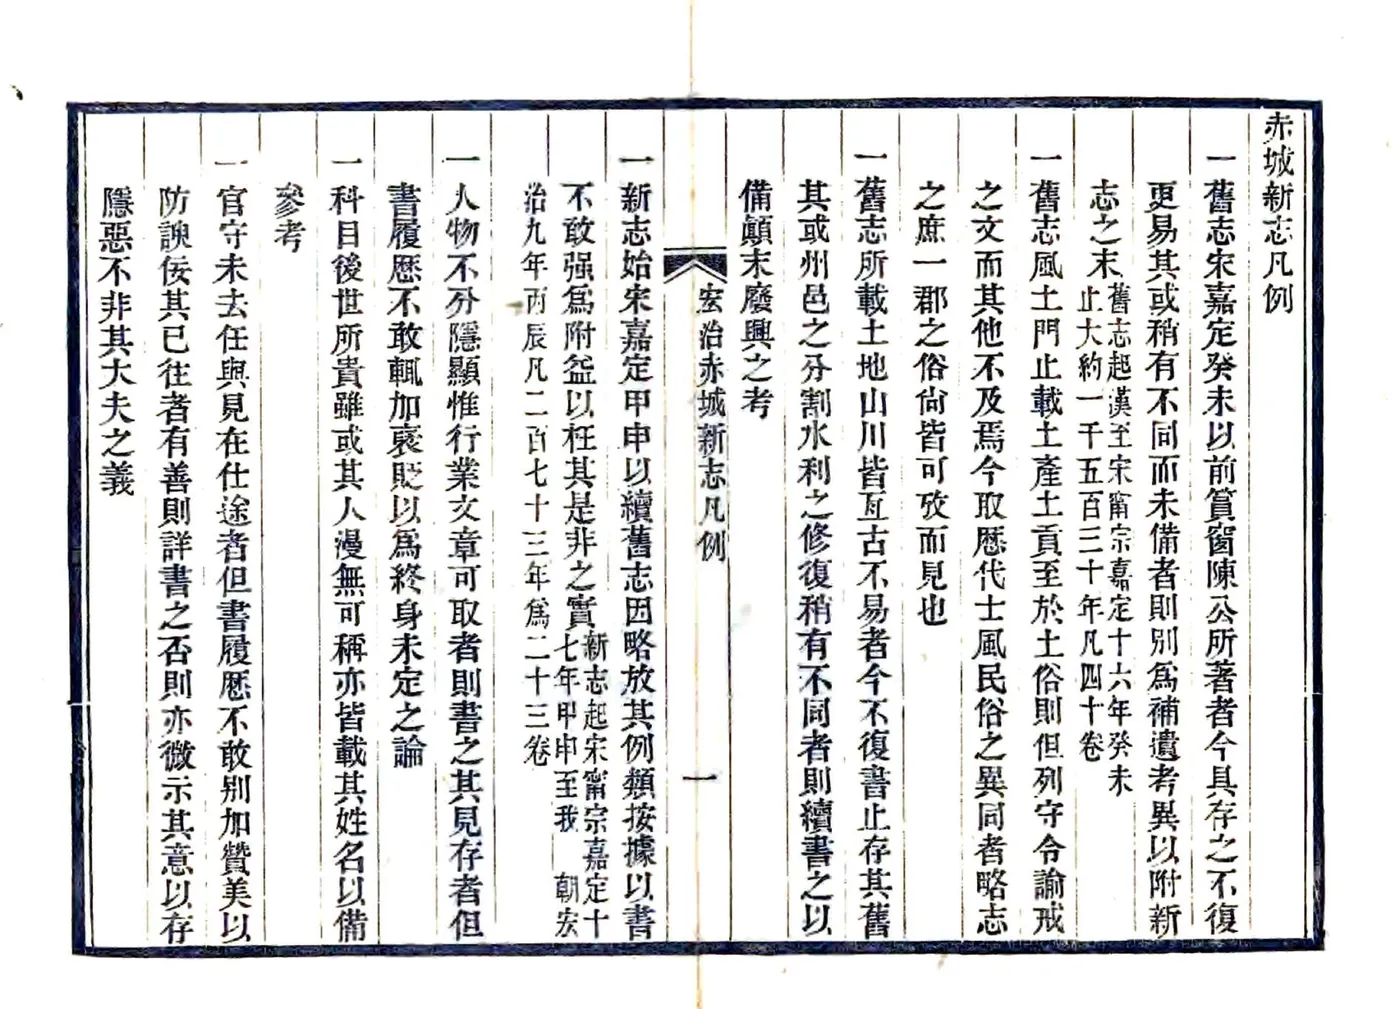 赤城新志凡例
一舊志宋嘉定癸未以前篔窗陳公所著者今具存之不復
更易其或稍有不同而未備者則別爲補遺考異以附新
志之末舊志起漢至宋甯宗嘉定十六年癸未
止大約一千五百三十年凡四十卷
一舊志風土門止載土產土貢至於土俗則但列守令諭戒
之文而其他不及焉今取歷代士風民俗之異同者略志
之庶一郡之俗尙皆可攷而見也
一舊志所載土地山川皆亙古不易者今不復書止存其舊
其或州邑之分割水利之修復稍有不同者則續書之以
備顛末廢興之考
宏治赤城新志凡例
一
一新志始宋嘉定甲申以續舊志因略放其例類按據以書
不敢强爲附益以枉其是非之實新志起宋甯宗嘉定十
七年甲申至我 朝宏
治九年丙辰凡二百七十三年爲二十三卷
一人物不分隱顯惟行業文章可取者則書之其見存者但
書履歷不敢輒加褒貶以爲終身未定之論
一科目後世所貴雖或其人漫無可稱亦皆載其姓名以備
參考
一官守未去任與見在仕途者但書履歷不敢別加贊美以
防諛佞其已往者有善則詳書之否則亦微示其意以存
隱惡不非其大夫之義